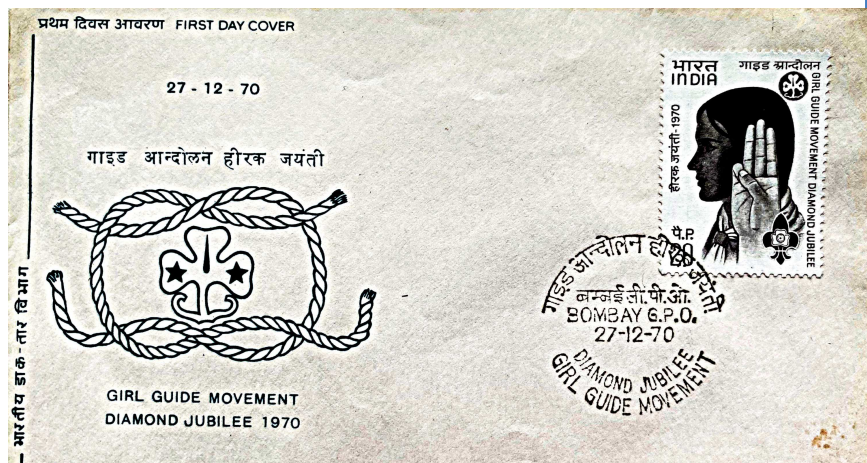 प्रथम दिवस आवरण FIRST DAY COVER
27 - 12 - 70
गाइड आन्दोलन हीरक जयंती
GIRL GUIDE MOVEMENT
DIAMOND JUBILEE 1970
भारतीय डाक-तार विभाग
भारत
INDIA
गाइड आन्दोलन
GIRL GUIDE MOVEMENT DIAMOND JUBILEE
हीरक जयंती-1970
पै.P.
20
गाइड आन्दोलन हीरक जयंती
बम्बई जी.पी.ओ.
BOMBAY G.P.O.
27-12-70
DIAMOND JUBILEE
GIRL GUIDE MOVEMENT